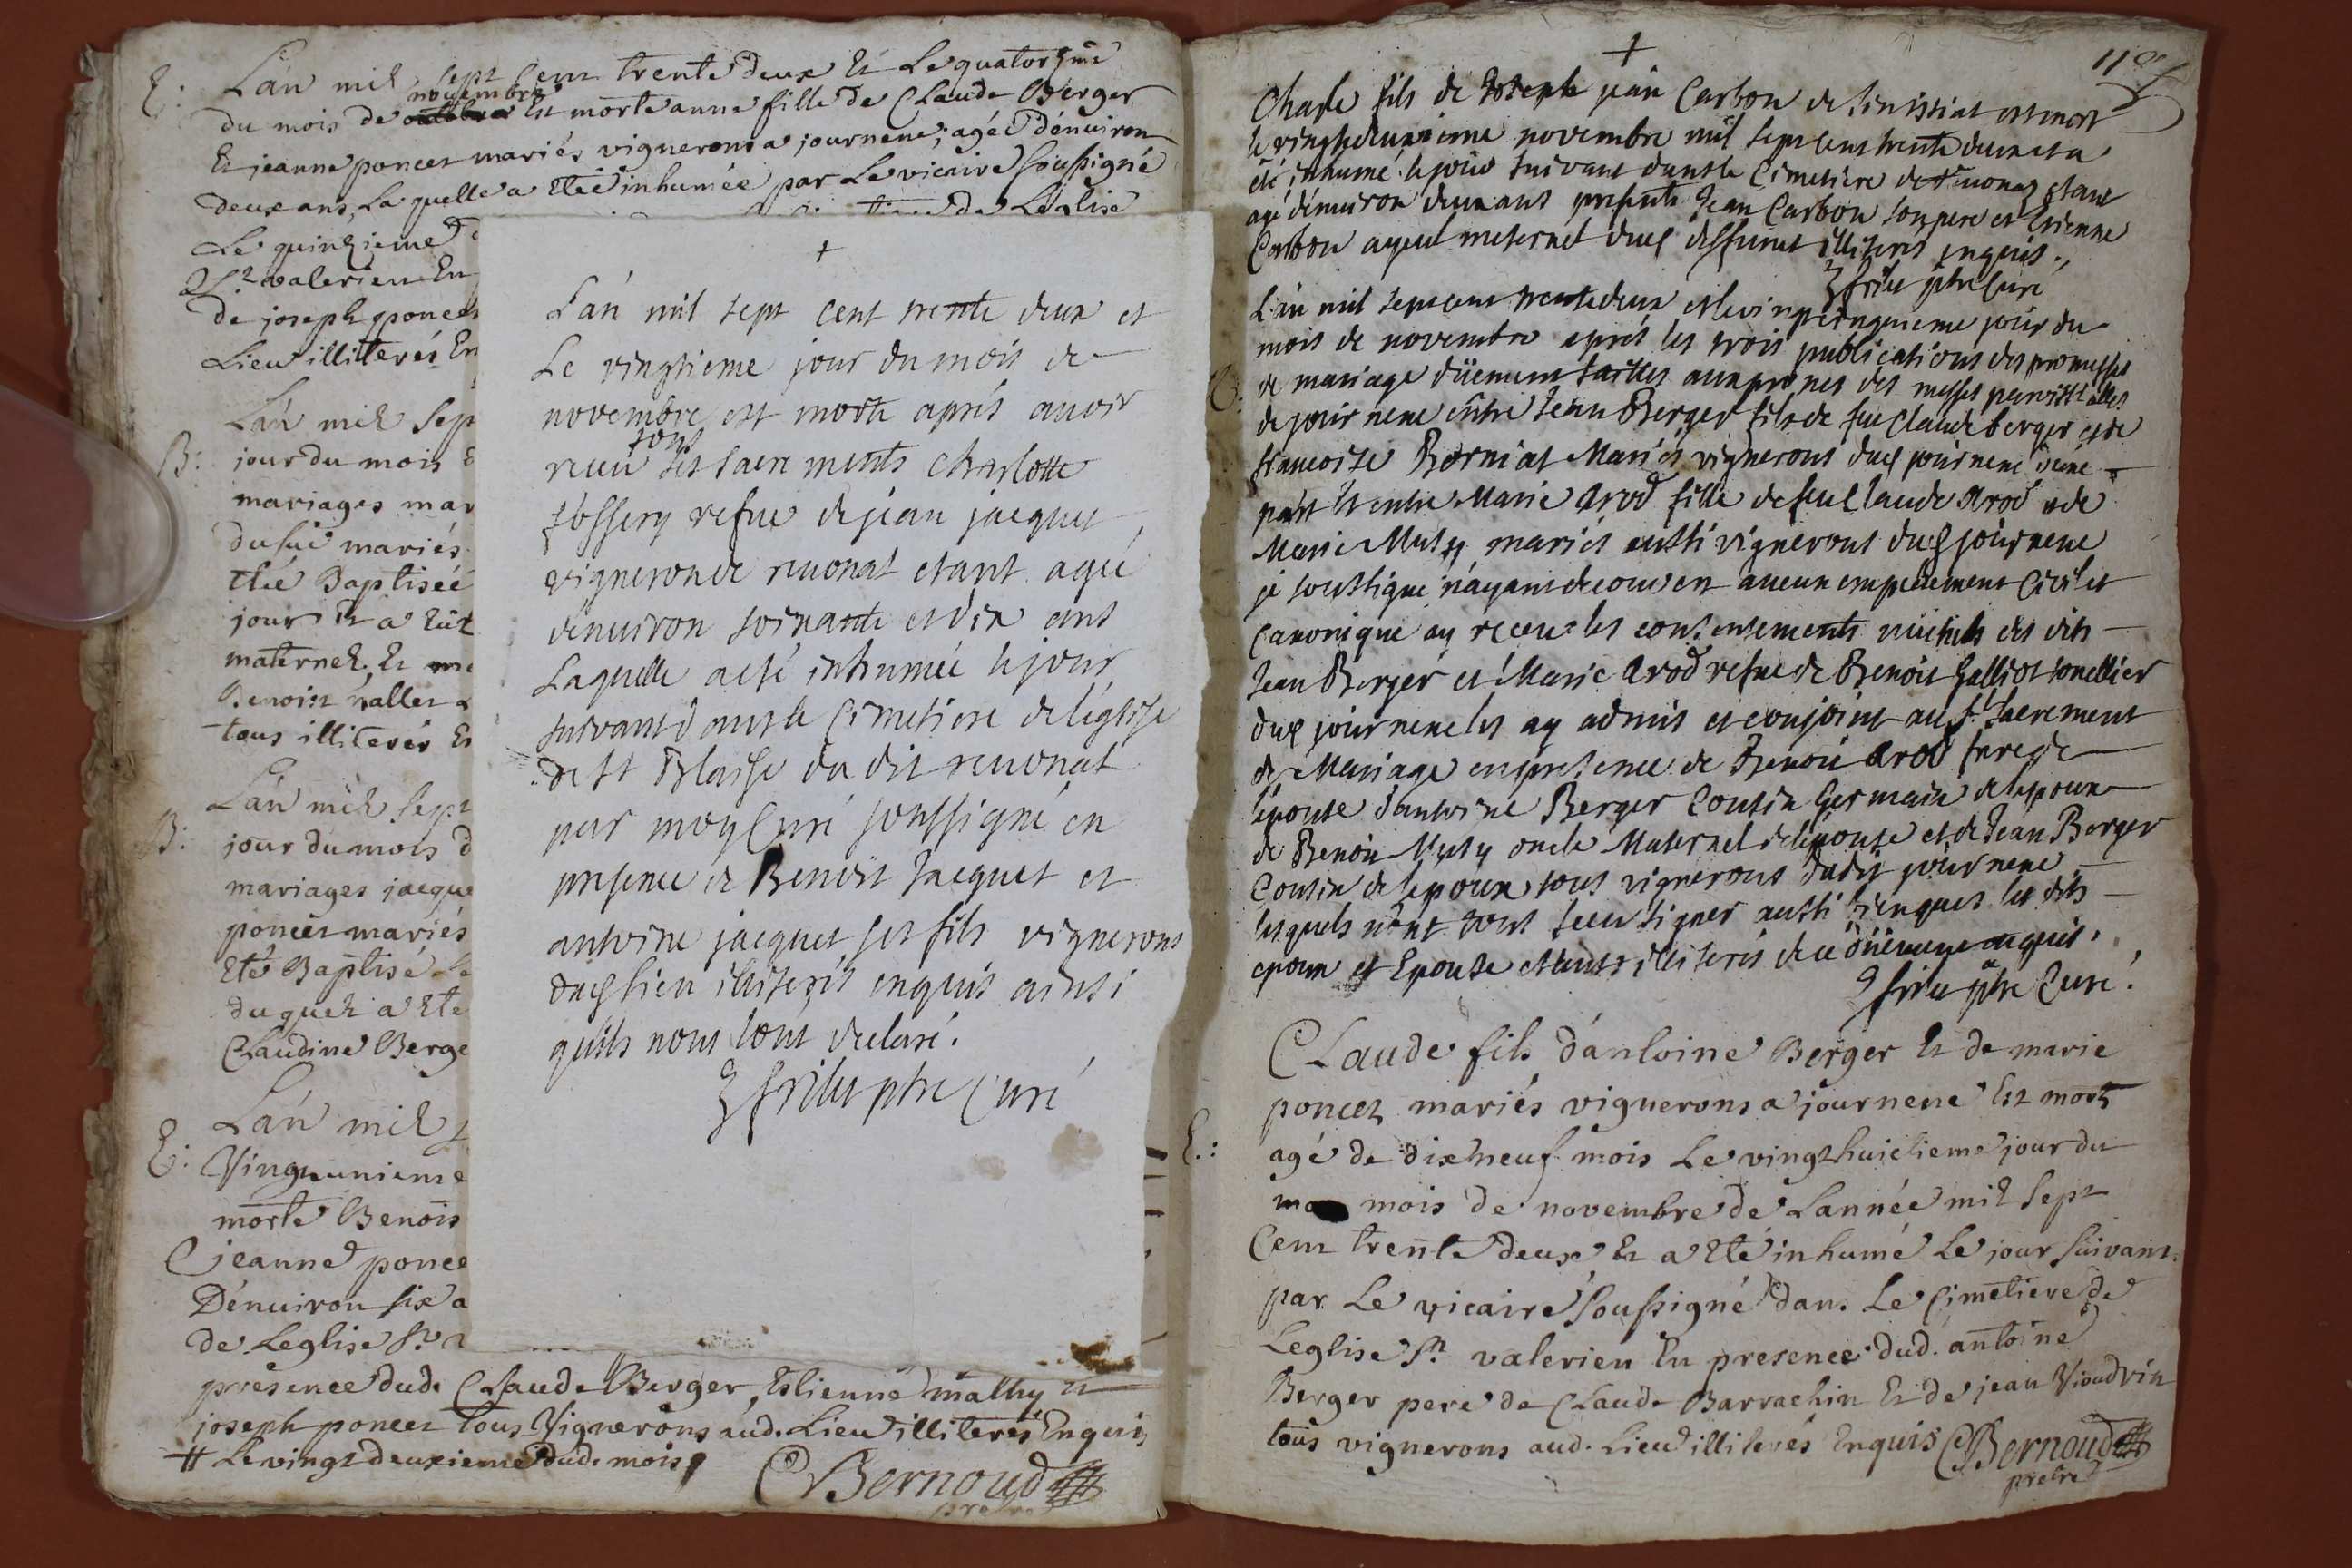 E: Lán mil sept cent trente deux Et Le quatorzme
novembre
du mois de octobre Est morte anne fille de Claude Berger
Et jeanne poncet mariés vignerons a journene; agée dénuiron
deux ans, La quelle a Eteé inhumée par Le vicaire soussigné
de Leglise
Le quinzieme
St valerien En
De joseph poncet
Lieu illiterés En
Lán mil sep
B: jour du mois
mariages mar
dusue mariés
Eteé Baptisée
jour Et a Eut
maternel. Et
Benoist nallet
tous illiterés Et
Lán mil sept
B: jour du mois d
mariages jacque
poncet mariés
Eté Baptisé Le
duquel a Ete
Claudine Berge
Lán mil
E: Vingtunieme
morte Benois
jeanne ponce
Dénuiron six a
de Leglise St
presence dud. Claude Berger, Estienne mathy Et
joseph poncet tous Vignerons aud. Lieu illiterés Enquis
# Le vingt deuxieme dud. mois
CBernoud
pretre
+
Lán mil sept cent trente deux et
Le vingtieme jour du mois de
novembre est morte aprés auoir
tous
receu les sacrements charlotte
fossery vefue de jean jacquet
vigneron de reuonat etant agée
dénuiron soixante et dix ans
Laquelle a eté inhumée le jour
suivant dans le cimetiere de léglise
de st Blaise du dit reuonat
par moy curé soussigné en
presence de Benoist Jacquet et
antoine jacquet ses fils vignerons
dud lieu illiterés enquis ainsi
quils nous lont declaré.
ptre curé
+
118
Charle fils de Joseph jean Carbon de est mort
le vingtdeuxieme novembre mil sept cent trente deux et a
été inhumé le jour suivant dans le Cimetiere de etant
agé dénuiron deux ans presents Jean Carbon son pere et Etienne
Carbon ayeul maternel dud deffunct illiterés enquis.
ptre Curé
Lán mil sept cent trente deux et le vingt cinquieme jour du
mois de novembre aprés les trois publications des promesses
de mariage düement faittes aux prones des messes
de journene entre Jean Berger fils de feu Claude berger et de
francoise Borniat Mariés vignerons dud journene dúne
part Et entre Marie Arod fille de feu Claude Arod et de
Marie Muty mariés aussi vignerons dud journene
je soussigné náyant decouvert aucun empechement Civil et
Canonique ay receu les consentements mütuels des dits
Jean Berger et Marie Arod vefue de Benoit Galliot tonellier
dud journene les ay admis et conjoint au st. Sacrement
de Mariage en presence de Benoit Arod frere de
lépouse dantoine Berger Cousin Germain de lépoux
de Benoit Muty oncle Maternel de lépouse et de Jean Berger
Cousin de lépoux tous vignerons dudit journene
lesquels nónt tous sceu signer aussi bien que les dits
epoux et Epouse etants illiterés de ce düement enquis.
ptre Curé.
Claude fils dántoine Berger Et de marie
poncet mariés vignerons a journene Est mort
E.: agé de dix neuf mois Le vingt huictieme jour du
mois de novembre de Lannée mil sept
Cent trente deux Et a Eté inhumé Le jour suivant
par Le vicaire soussigné dans Le Cimetiere de
Leglise St valerien En presence dud. antoine
Berger pere de Claude Barrachin Et de jean Vioudrin
tous vignerons aud. Lieu illiterés Enquis CBernoud
pretre